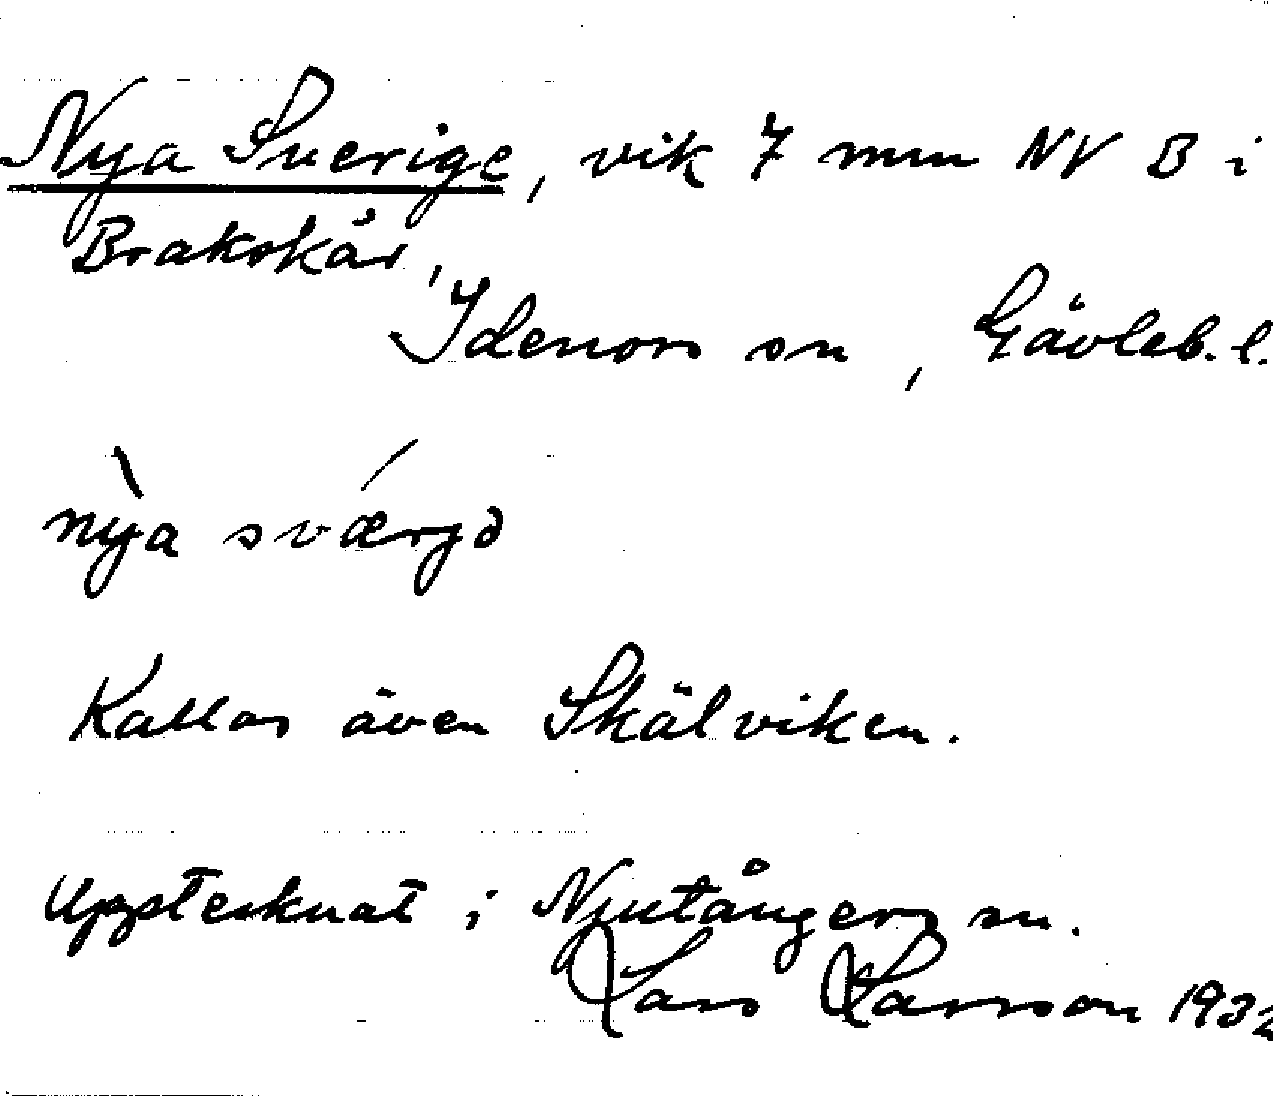 Nya Sverige, vik 7 mm NV B i
Brakskär,
Idenors sn, Gävleb. l.
nỳa sváergə
Kallas även Skälviken.
Upptecknat i Njutångers sn.
Lars Larsson 1932